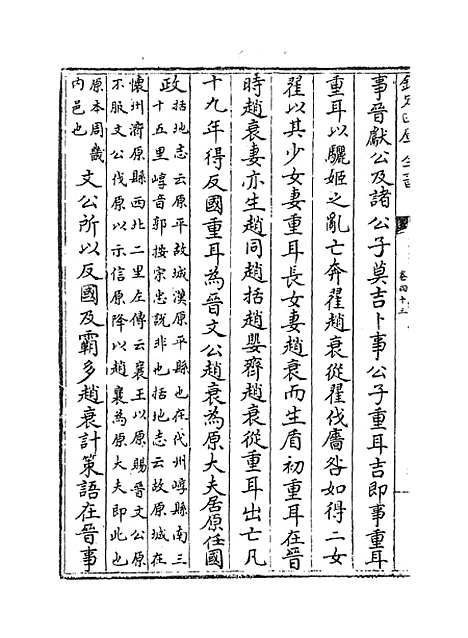 欽定四庫全書
卷四十三
事晉獻公及諸公子莫吉卜事公子重耳吉即事重耳
重耳以驪姬之亂亡奔翟趙衰從翟伐廧咎如得二女
翟以其少女妻重耳長女妻趙衰而生盾初重耳在晉
時趙衰妻亦生趙同趙括趙嬰齊趙衰從重耳出亡凡
十九年得反國重耳為晉文公趙衰為原大夫居原任國
政
括地志云原平故城漢原平縣也在代州崞縣南三
十五里崞音郭按宗忠説非也括地志云故原城在
懷州濟原縣西北二里左傳云襄王以原賜晉文公原
不服文公伐原以示信原降以趙衰為原大夫即此也
原本周畿
内邑也
文公所以反國及霸多趙衰計策語在晉事